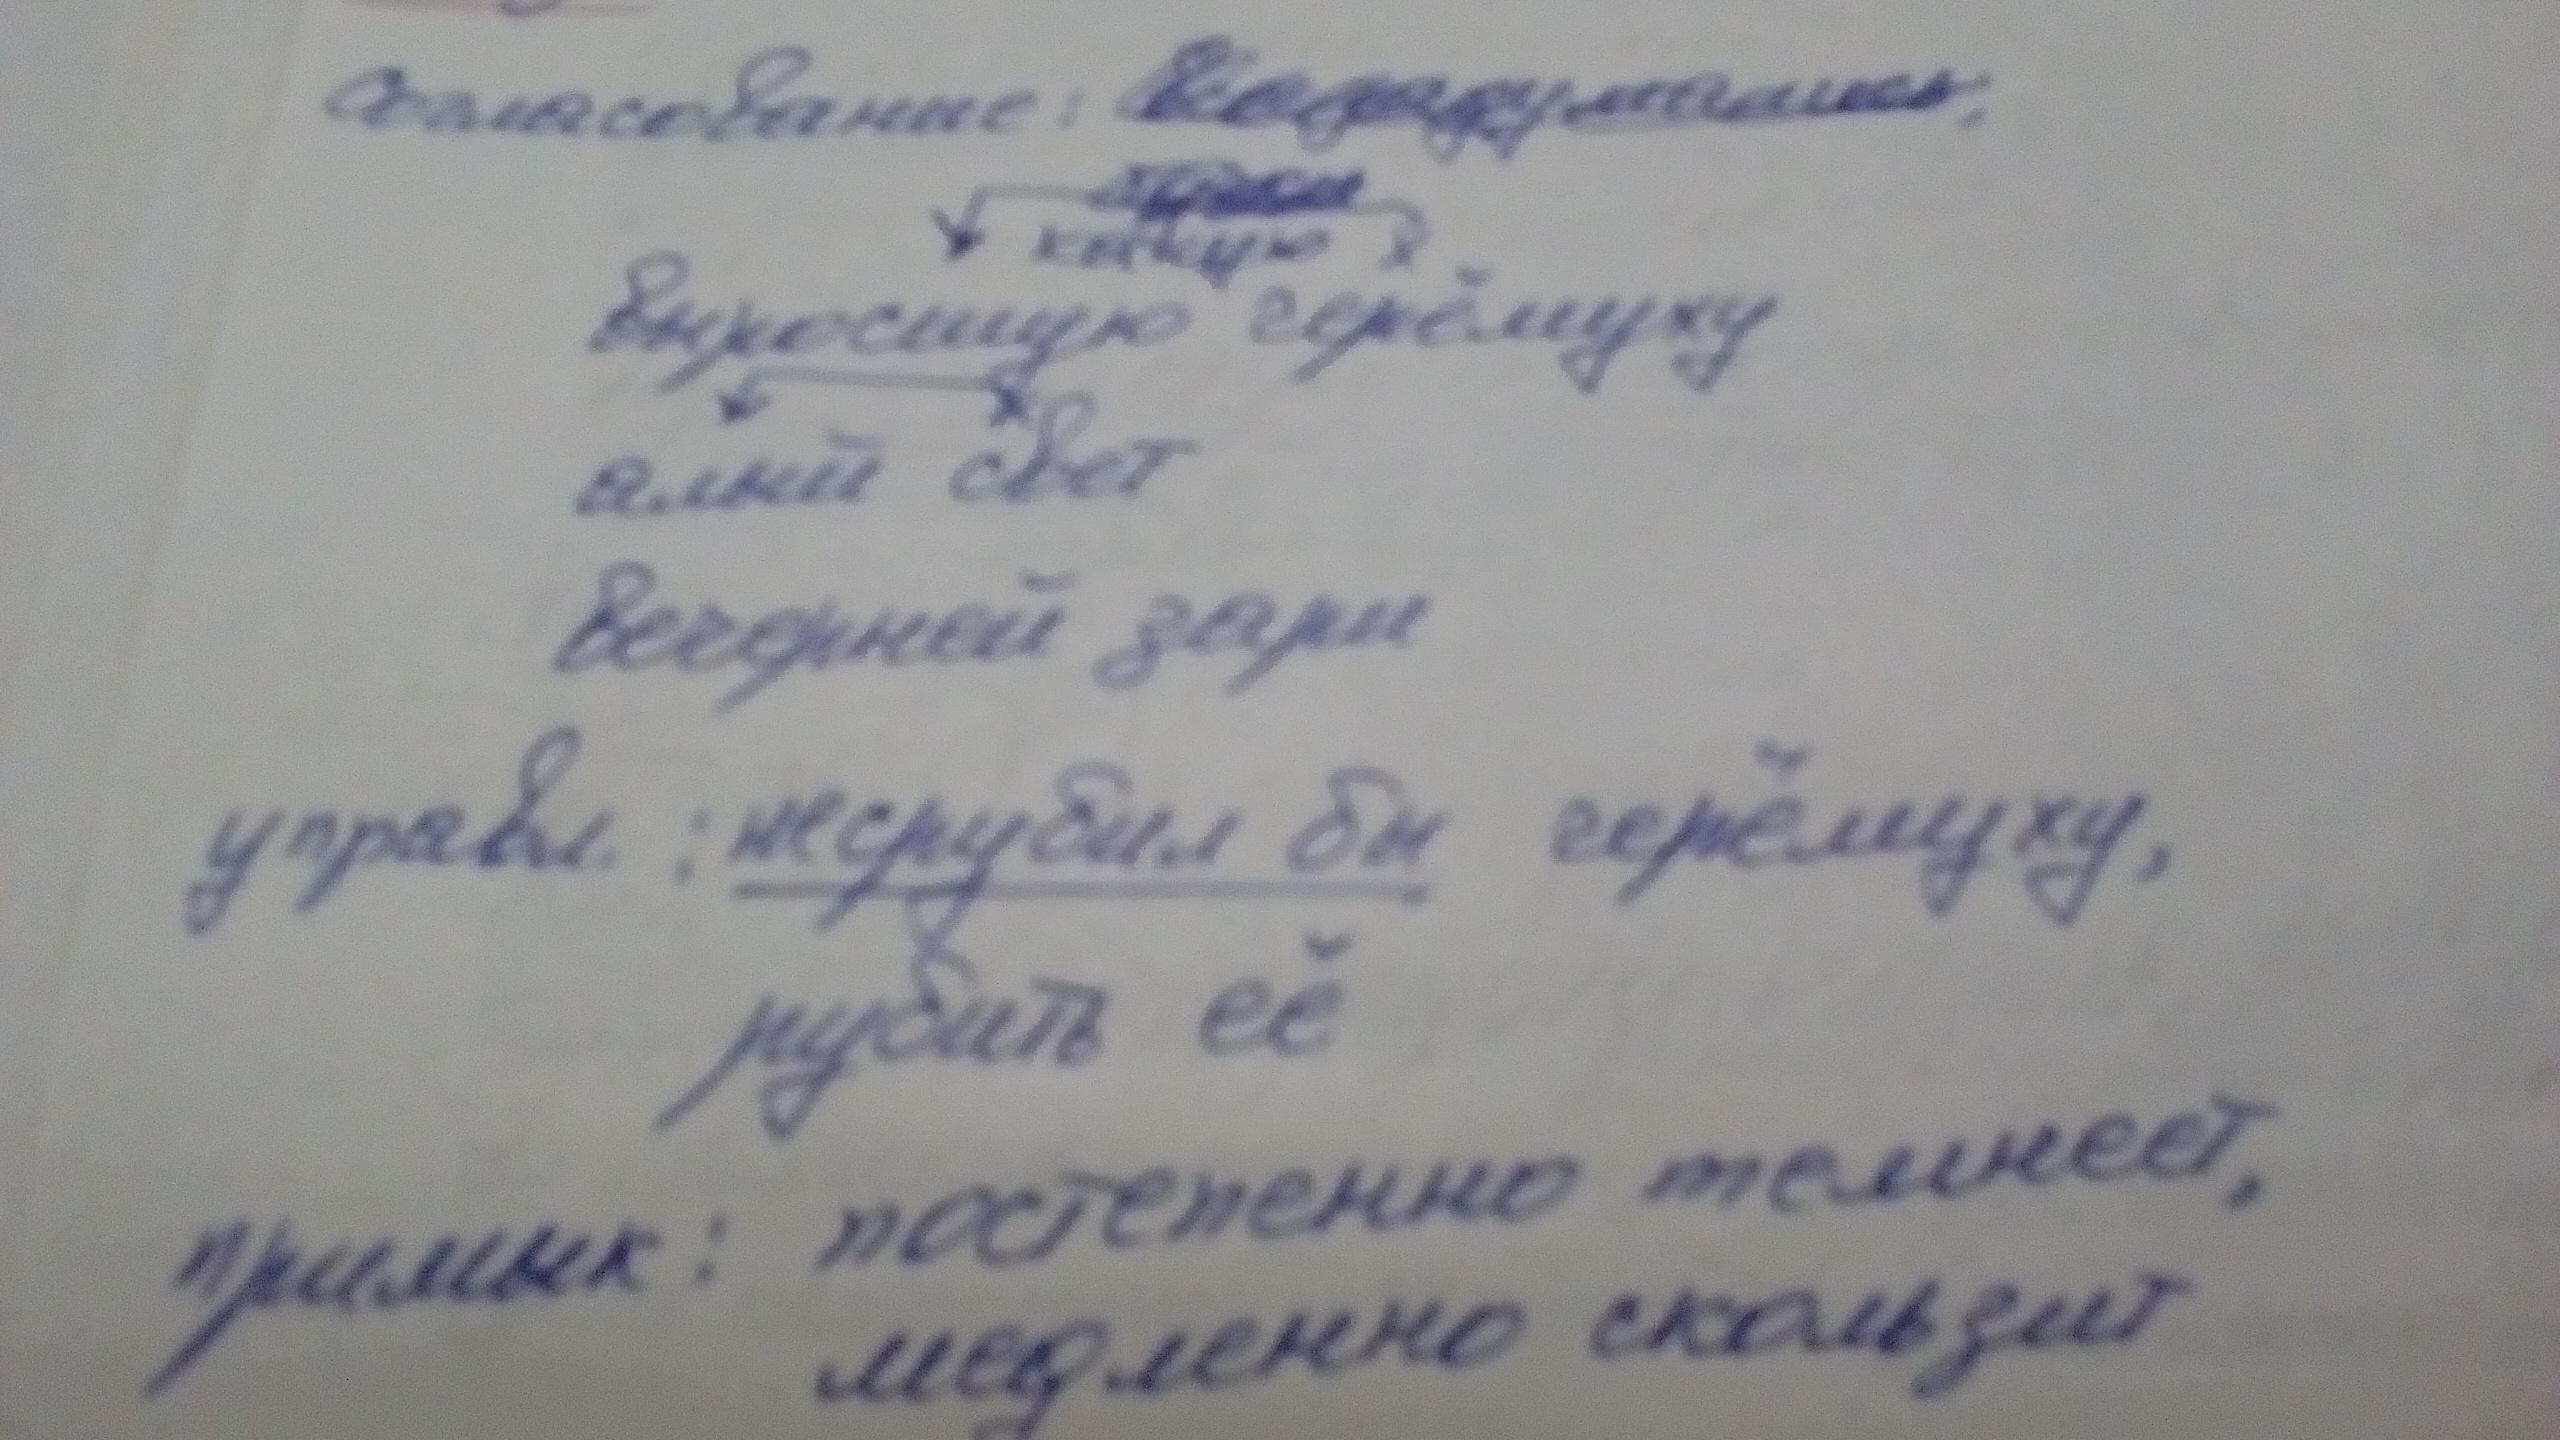 Согласование:
какую х
выросшую черёмуху
х
алый свет
вечерней зари
управл. : не срубил бы черёмуху,
рубить её
примык : постепенно темнеет,
медленно скользит